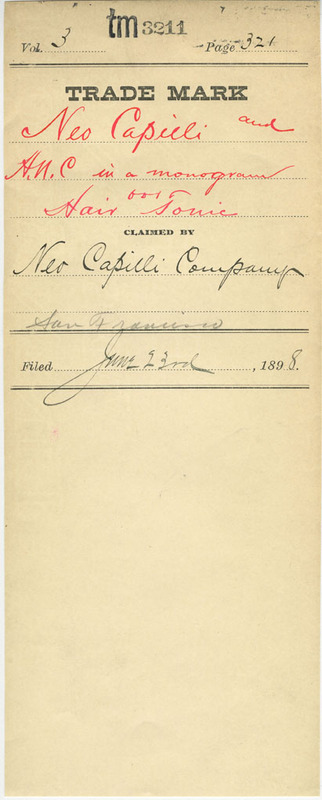 tm 3211
Vol. 3 Page 321
TRADE MARK
Neo Capilli and
A.N.C in a monogram
Hair Tonic
CLAIMED BY
Neo Capilli Company
San Francisco
Filed June 23rd, 1898.